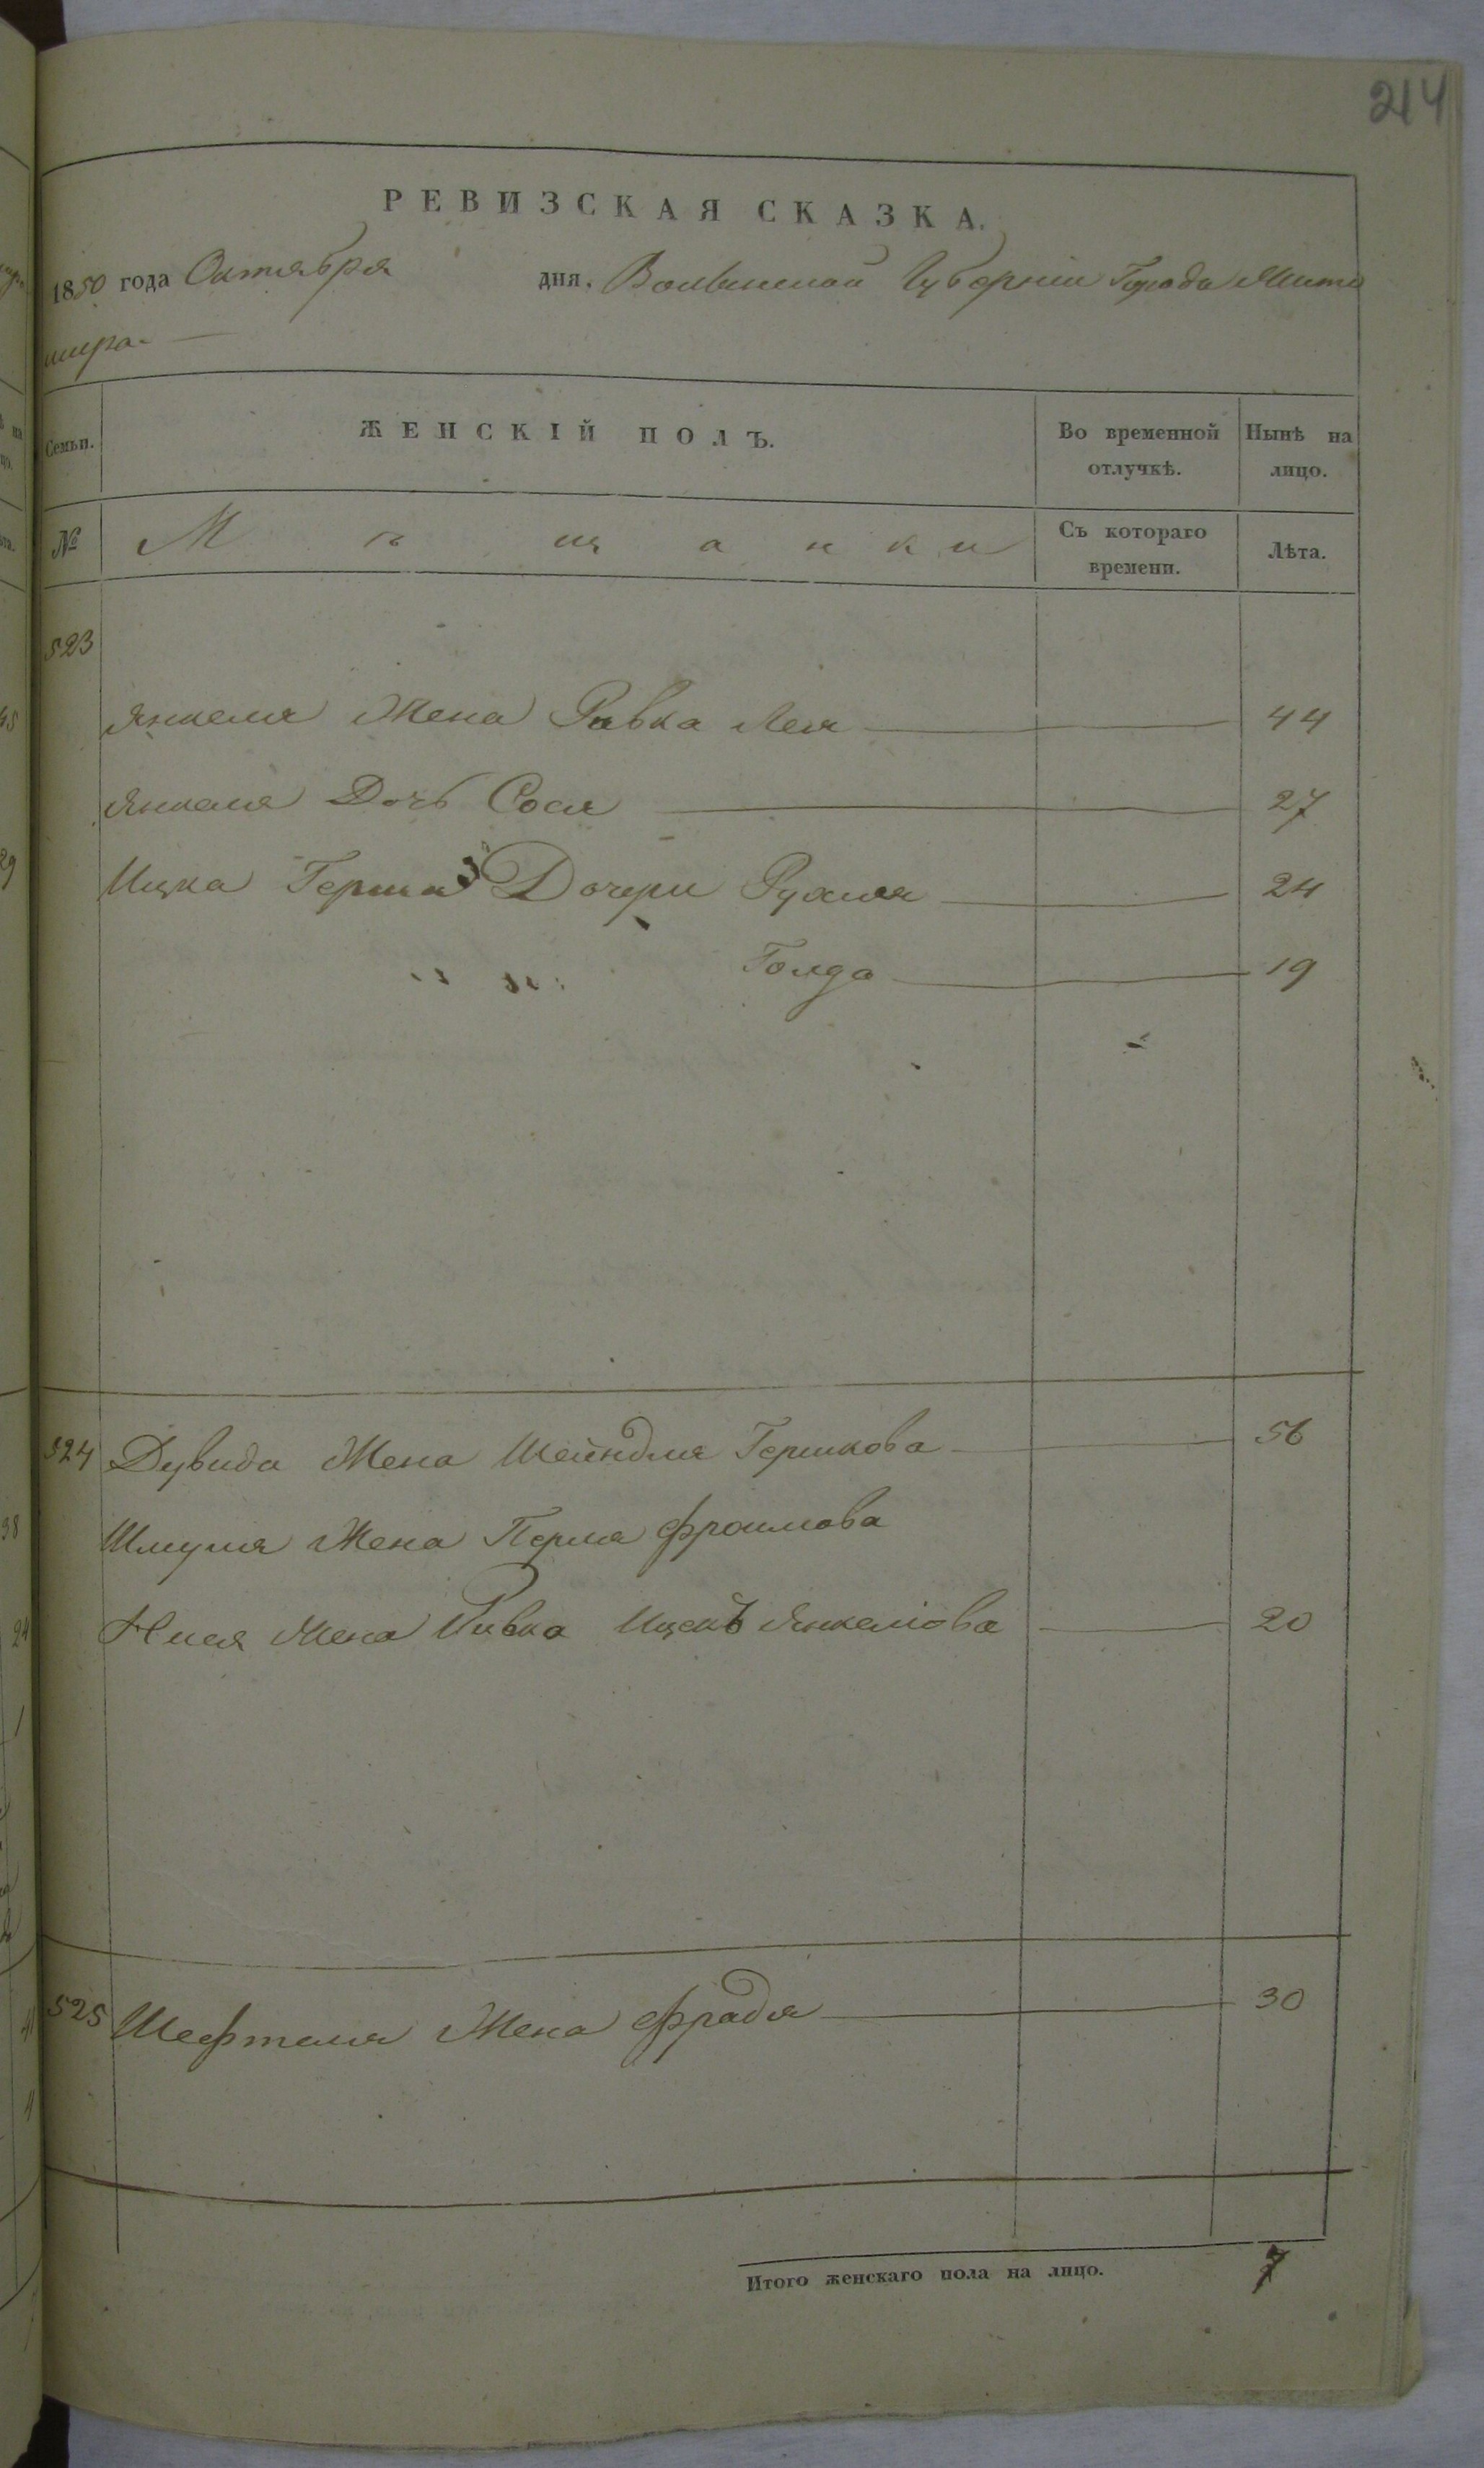 214
РЕВИЗСКАЯ СКАЗКА.
1850 года Октября дня. Волынской Губерніи Города Жито
мира.
Семьи. ЖЕНСКІЙ ПОЛЪ. Во временной отлучкѣ. Нынѣ на лицо.
№ Мѣщанки Съ котораго времени. Лѣта.
523
Янкеля Жена Ривка Лея 44
Янкеля Дочь Сося 27
Ицка Герша Дочери Рухля 24
Голда 19
524 Дувида Жена Шейндля Гершкова 56
Шмуля Жена Перля Фроимова
Жена Ривка Ицекъ Янкеліова 20
525 Шефтеля Жена Фрадя 30
Итого женскаго пола на лицо. 7